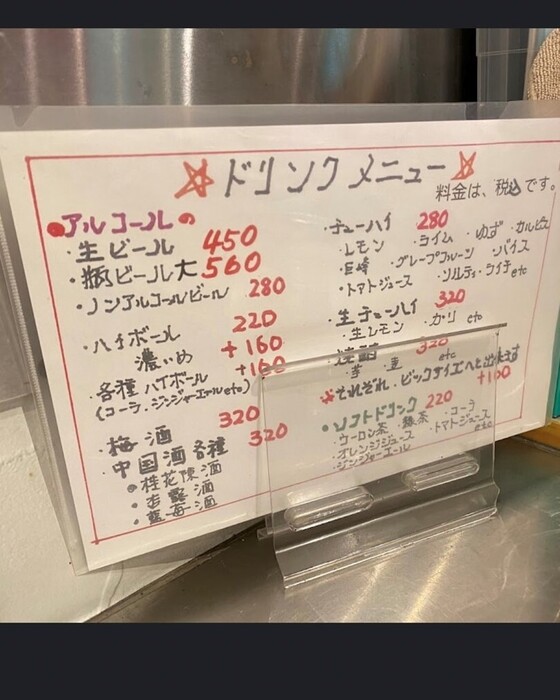 ドリンクメニュー
料金は、税込です。
アルコールの
・生ビール 450
・瓶ビール大 560
・ノンアルコールビール 280
・ハイボール 220
濃いめ +160
・各種ハイボール +160
(コーラ、ジンジャーエールetc)
・梅酒 320
・中国酒各種 320
・桂花陳酒
・杏露酒
・藍苺酒
・チューハイ 280
・レモン ・ライム ・ゆず ・カルピス
・巨峰 ・グレープフルーツ ・バイス
・トマトジュース ・ソルティライチetc
・生チューハイ 320
・生レモン ・ガリ etc
焼酎 320
芋 麦 etc
※それぞれ、ビックサイズへと出来ます
+100
・ソフトドリンク 220
・ウーロン茶 ・緑茶 ・コーラ
・オレンジジュース ・トマトジュース
・ジンジャーエール etc